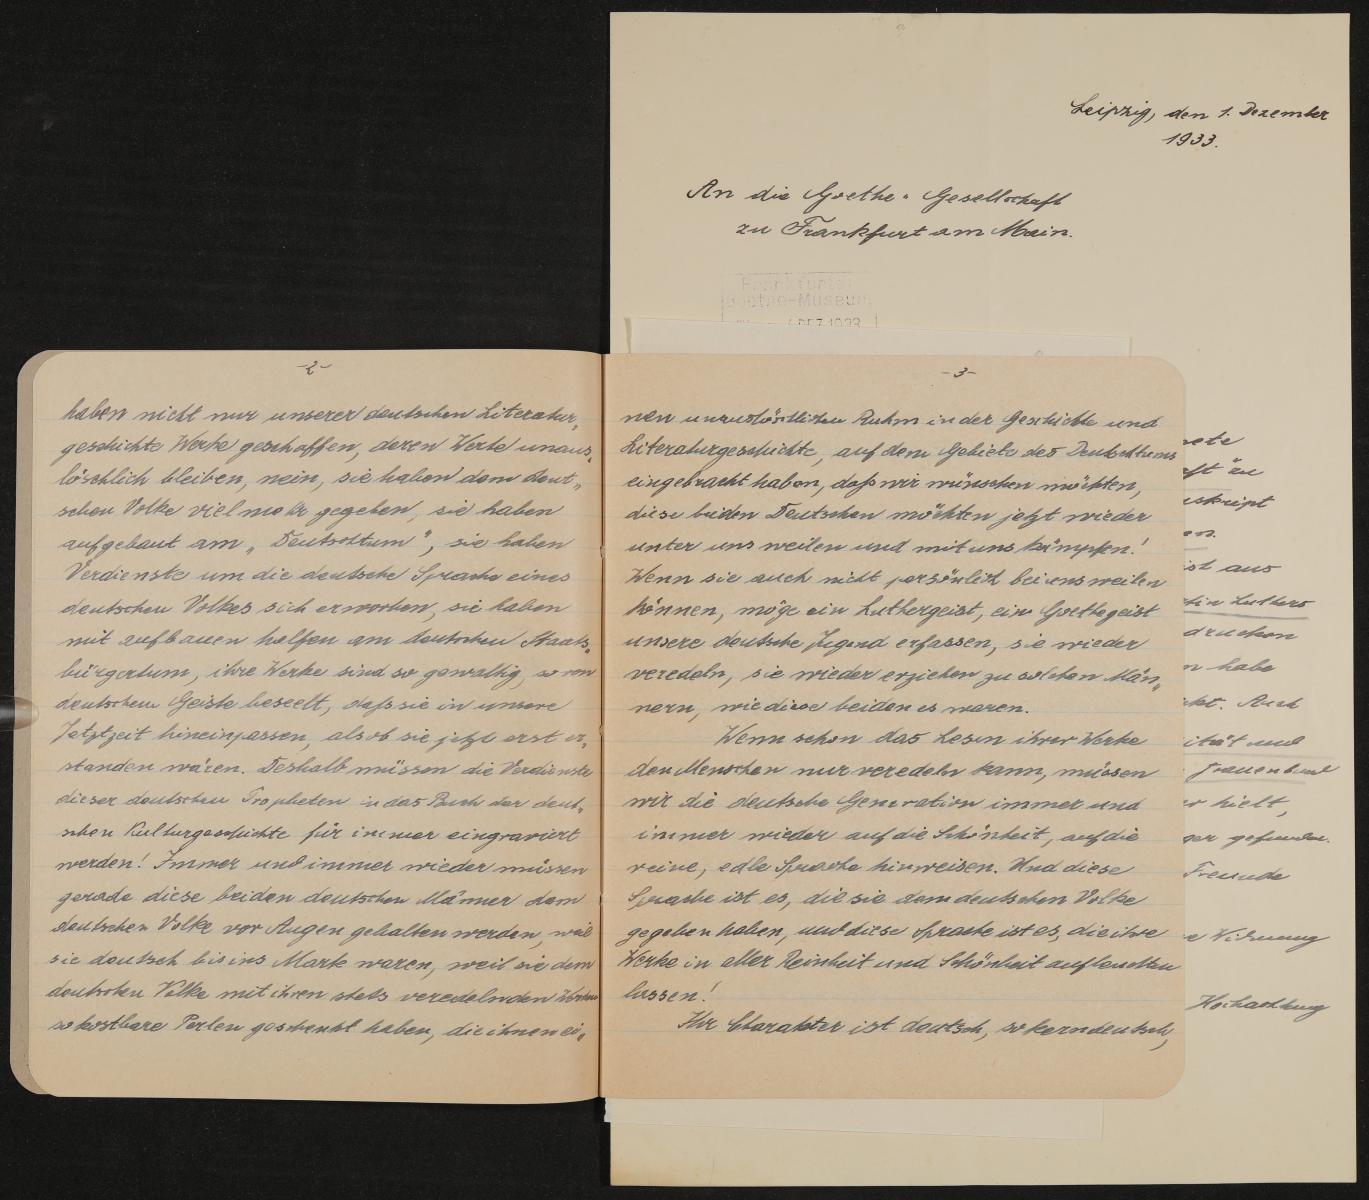 Leipzig, den 1. Dezember
1933.
An die Goethe-Gesellschaft
zu Frankfurt am Main.
Frankfurter
Goethe-Museum
DEZ 1933
-2-
haben nicht nur unserer deutschen Literatur-
geschichte Werke geschaffen, deren Werte unaus-
löschlich bleiben, nein, sie haben dem deut-
schen Volke viel mehr gegeben, sie haben
aufgebaut am „Deutschtum", sie haben
Verdienste um die deutsche Sprache eines
deutschen Volkes sich erworben, sie haben
mit aufbauen helfen am deutschen Staats-
bürgertum, ihre Werke sind so gewaltig, so von
deutschem Geiste beseelt, daß sie in unsere
Jetztzeit hineinpassen, als ob sie jetzt erst er-
standen wären. Deshalb müssen die Verdienste
dieser deutschen Propheten in das Buch der deut-
schen Kulturgeschichte für immer eingraviert
werden! Immer und immer wieder müssen
gerade diese beiden deutschen Männer dem
deutschen Volke vor Augen gehalten werden, weil
sie deutsch bis ins Mark waren, weil sie dem
deutschen Volke mit ihren stets veredelnden Werken
so kostbare Perlen geschenkt haben, die ihnen ei-
-3-
nen unauslöschlichen Ruhm in der Geschichte und
Literaturgeschichte, auf dem Gebiete des Deutschtums
eingebracht haben, daß wir wünschen möchten,
diese beiden Deutschen möchten jetzt wieder
unter uns weilen und mit uns kämpfen!
Wenn sie auch nicht persönlich bei uns weilen
können, möge ein Luthergeist, ein Goethegeist
unsere deutsche Jugend erfassen, sie wieder
veredeln, sie wieder erziehen zu solchen Män-
nern, wie diese beiden es waren.
Wenn schon das Lesen ihrer Werke
den Menschen nur veredeln kann, müssen
wir die deutsche Generation immer und
immer wieder auf die Schönheit, auf die
reine, edle Sprache hinweisen. Und diese
Sprache ist es, die sie dem deutschen Volke
gegeben haben, und diese Sprache ist es, die ihre
Werke in aller Reinheit und Schönheit aufleuchten
lassen!
Ihr Charakter ist deutsch, so kerndeutsch,
nete
aft" zu
uskript
en.
ist aus
tin Luthers
drucken
n habe
kt. Auch
ität und
Frauenbund
er hielt,
ger gefunden.
Freunde
e Widmung
Hochachtung